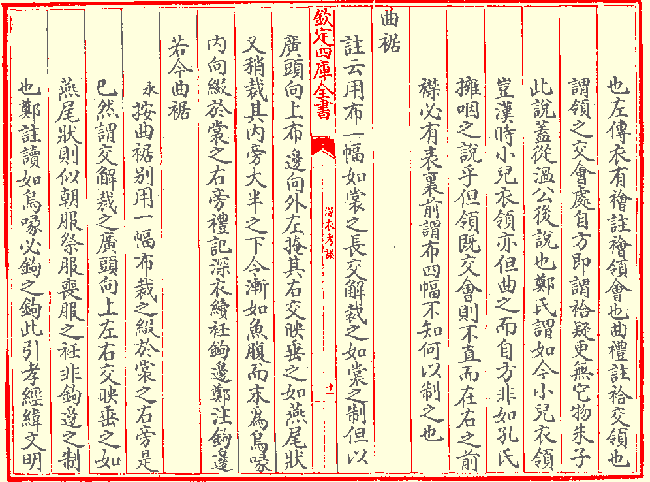 也左傳衣有襘註襘領會也曲禮註袷交領也
謂領之交會處自方即謂袷疑更無它物朱子
此說蓋從溫公後說也鄭氏謂如今小兒衣領
豈漢時小兒衣領亦但曲之而自方非如孔氏
擁咽之說乎但領既交會則不直而在右之前
襟必有表裏前謂布四幅不知何以制之也
曲裾
註云用布一幅如裳之長交解裁之如裳之制但以
欽定四庫全書
深衣考誤
十一
廣頭向上布邊向外左掩其右交映垂之如燕尾狀
又稍裁其內旁大半之下令漸如魚腹而末為鳥喙
內向綴於裳之右旁禮記深衣續衽鉤邊鄭注鉤邊
若今曲裾
永按曲裾別用一幅布裁之綴於裳之右旁是
已然謂交解裁之廣頭向上左右交映垂之如
燕尾狀則似朝服祭服喪服之衽非鉤邊之制
也鄭註讀如鳥喙必鉤之鉤此引孝經緯文明